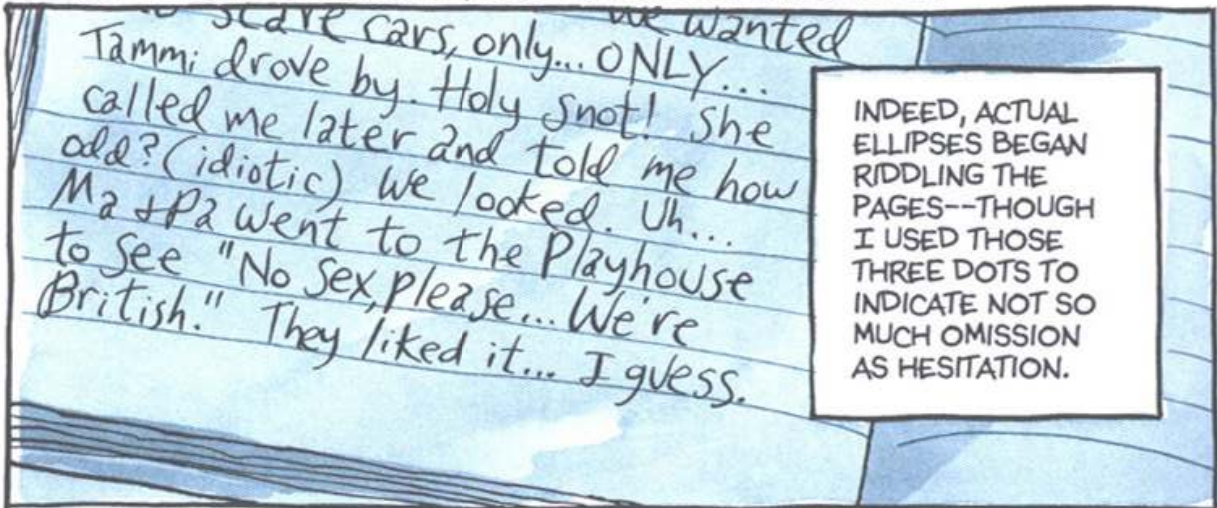 to scare cars, only... ONLY... we wanted
Tammi drove by. Holy Snot! She
called me later and told me how
odd? (idiotic) we looked. Uh...
Ma + Pa went to the Playhouse
to see "No Sex, please... We're
British." They liked it... I guess.
INDEED, ACTUAL
ELLIPSES BEGAN
RIDDLING THE
PAGES--THOUGH
I USED THOSE
THREE DOTS TO
INDICATE NOT SO
MUCH OMISSION
AS HESITATION.